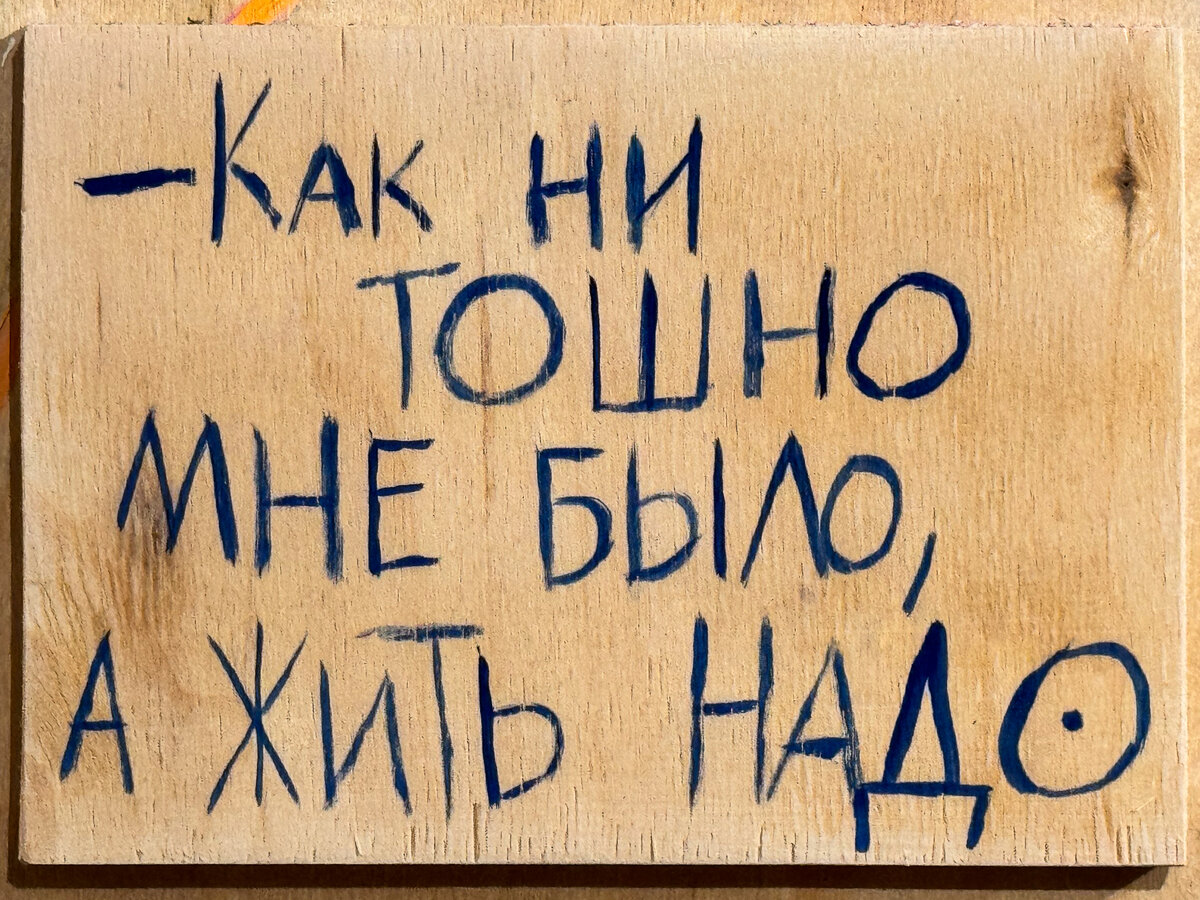 — Как ни
тошно
мне было,
а жить надо